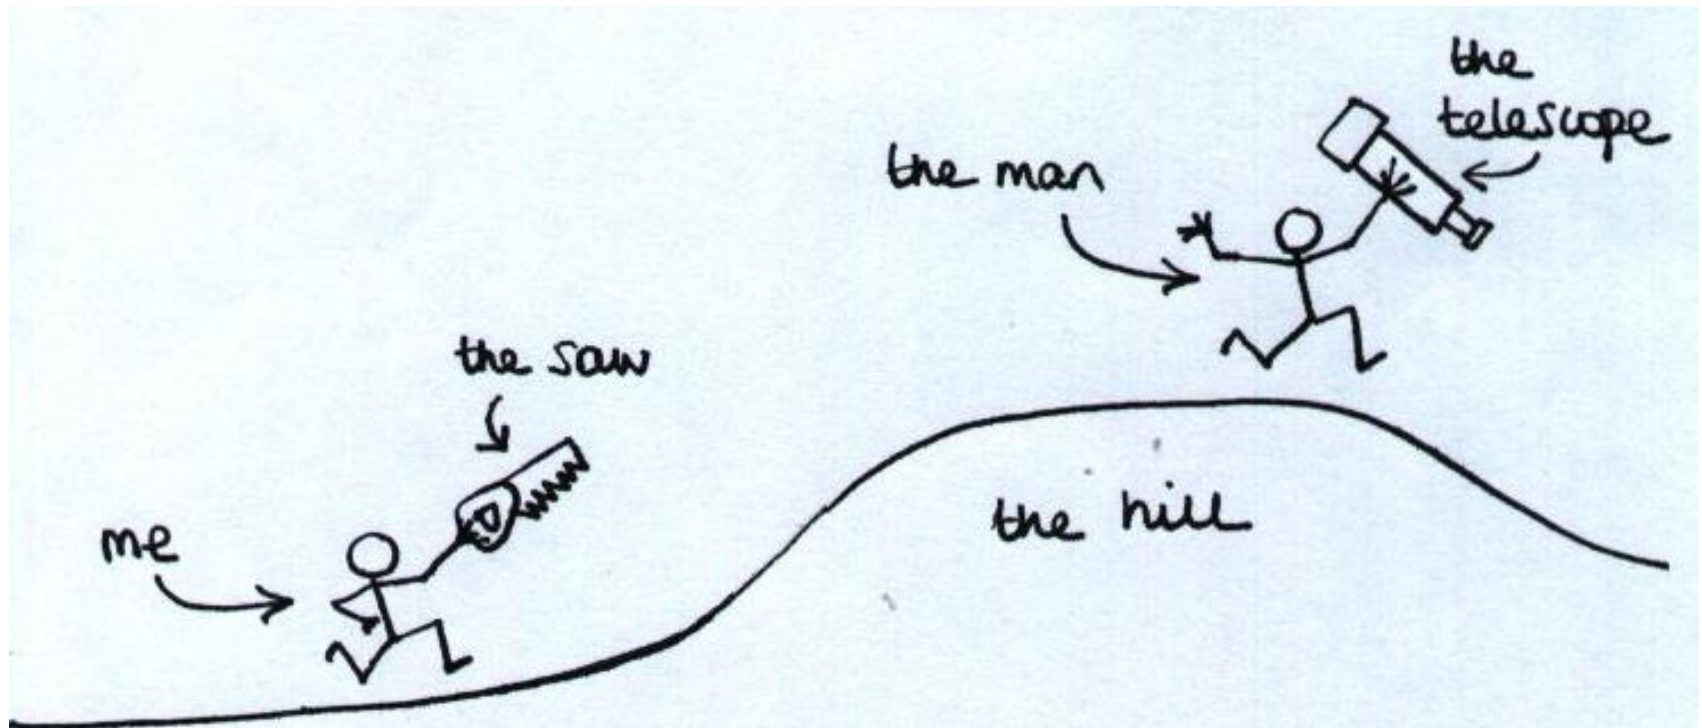 the
telescope
the man
the saw
me
the hill